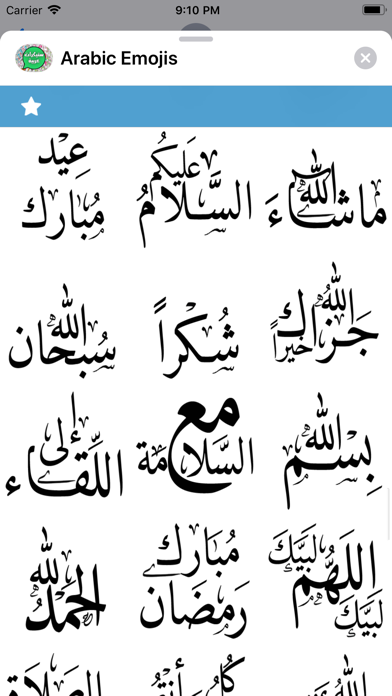 Carrier 9:10 PM
Arabic Emojis
ما شاء الله
السَّلامُ عَلَيكُم
عِيْد مُبارك
جَزاك الله خيراً
شُكْراً
سُبحان الله
بِسْمِ الله
مع السَّلامة
إلى اللِّقاء
لبَيَّكَ اللَهُم لبَيَّكَ
مُبارك رَمضَان
الحَمدُ لله
الله
كُل أنتُم
الصَلاة